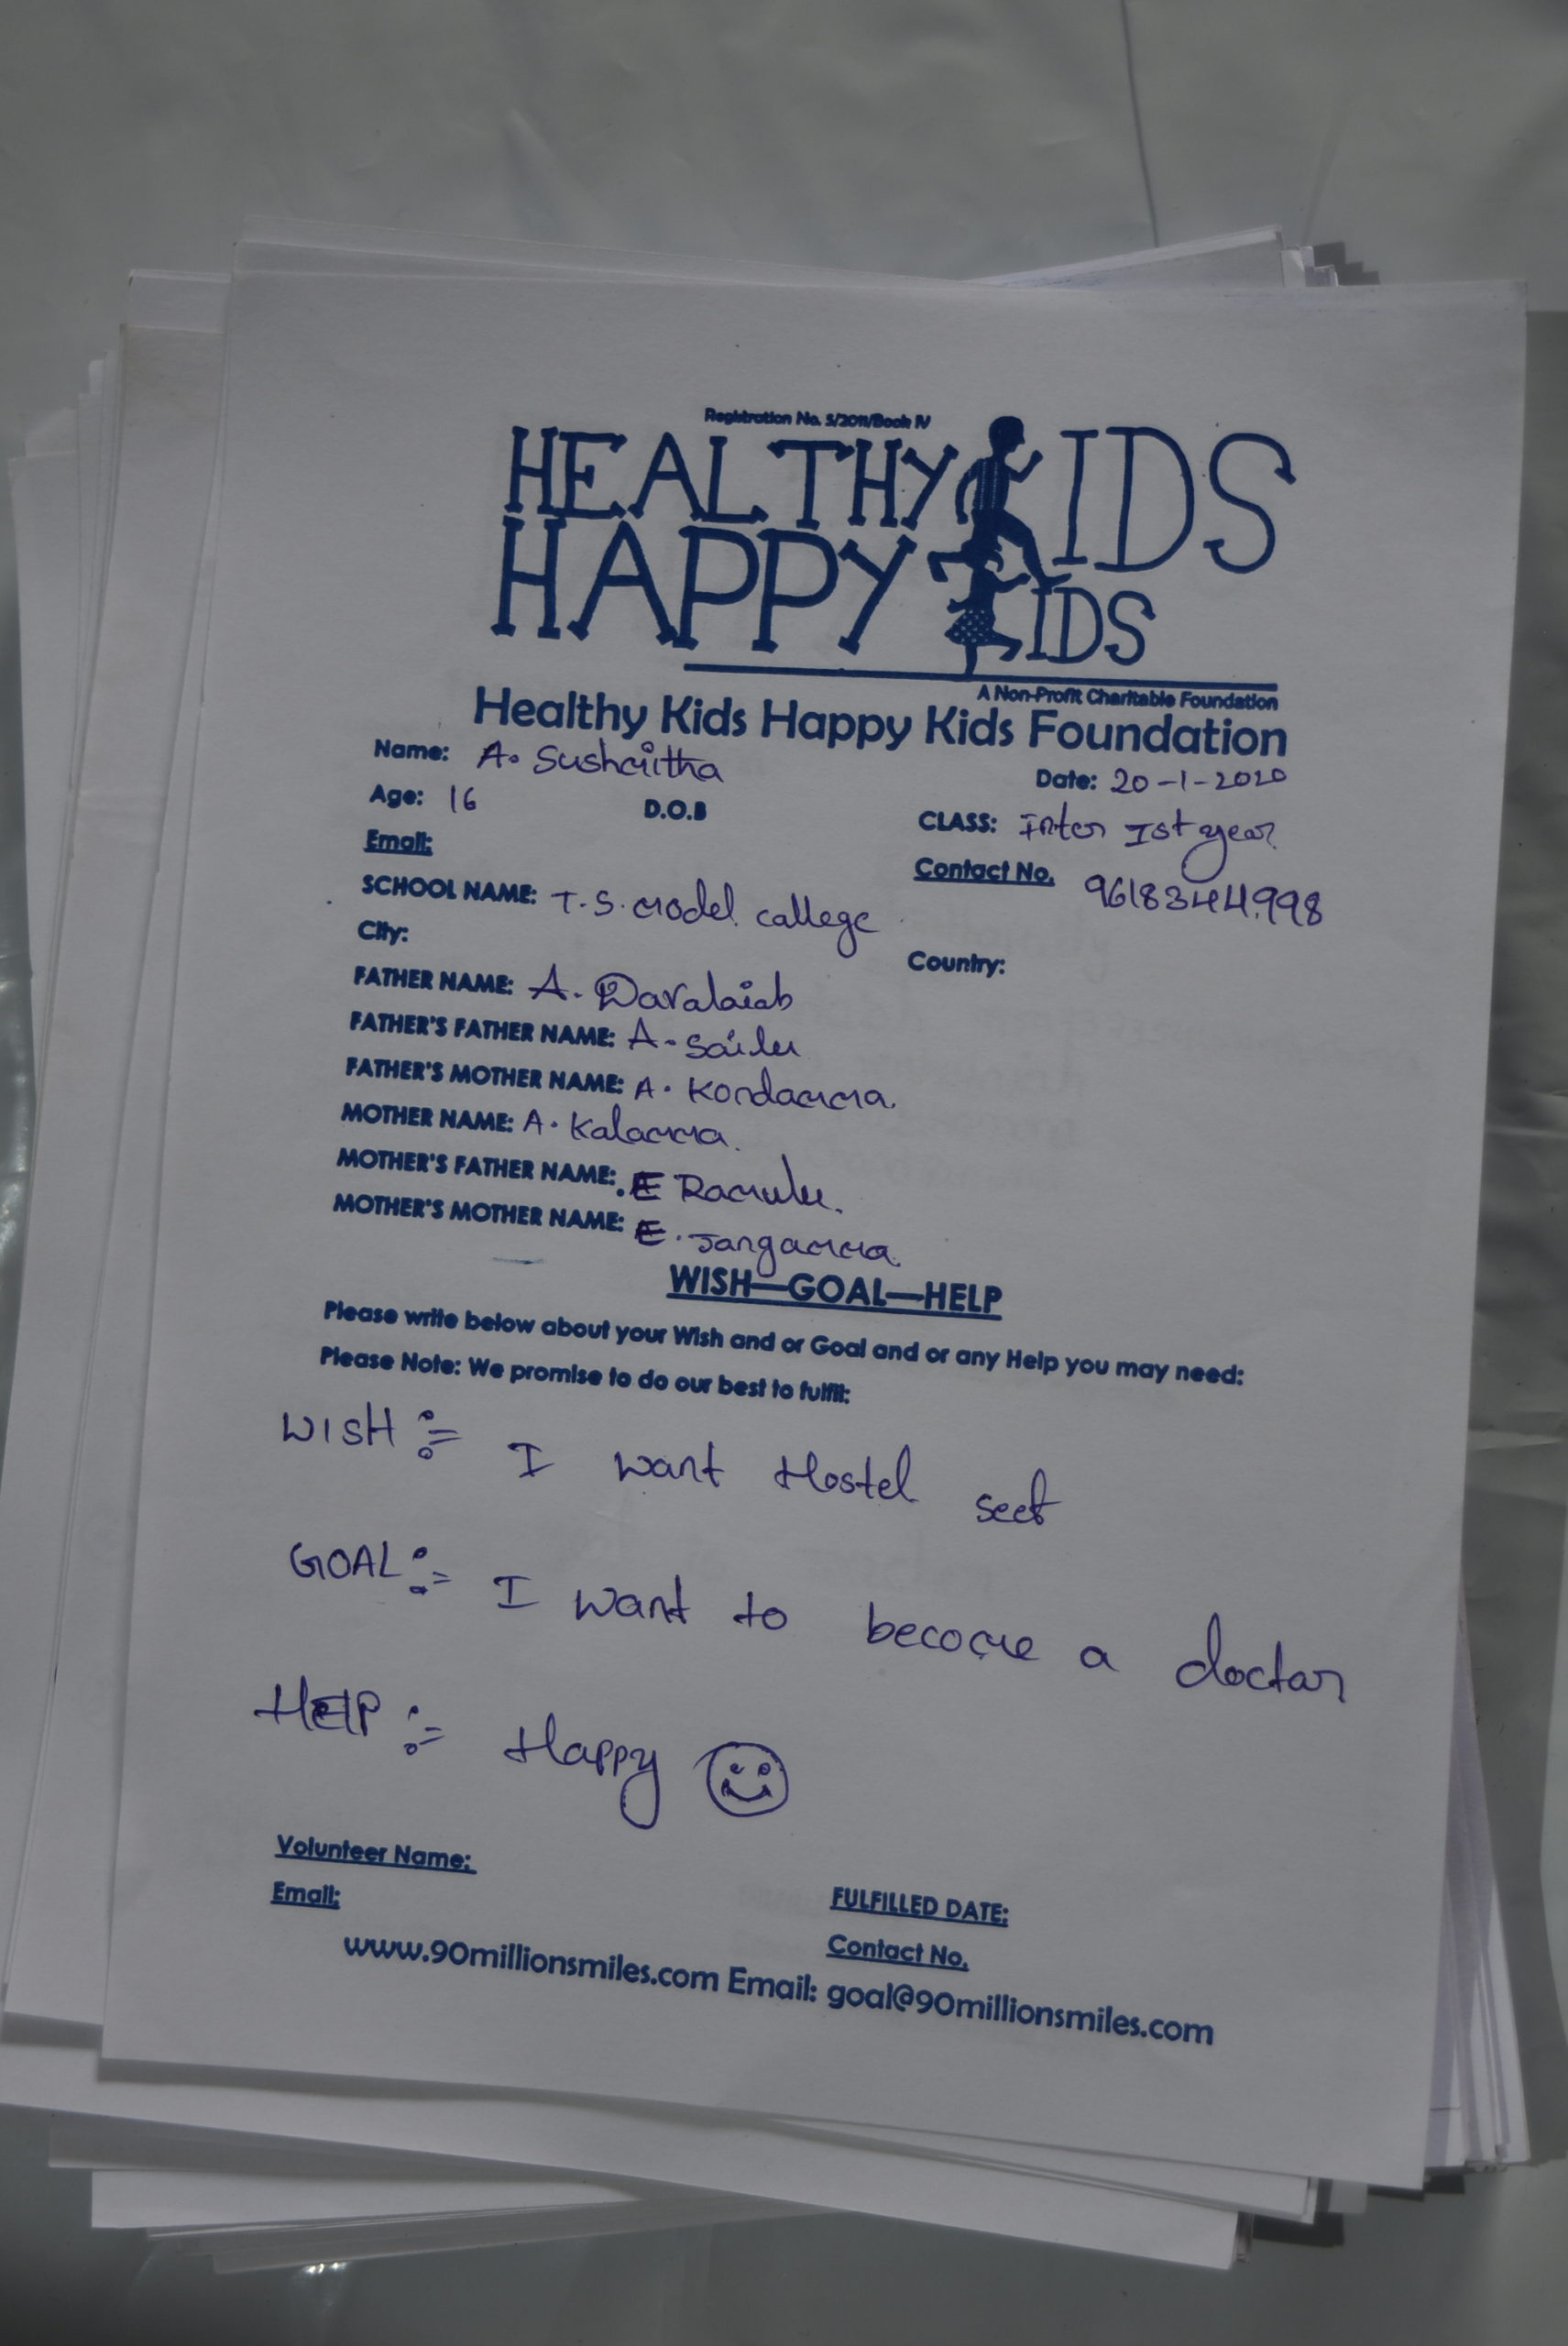 Registration No. 5/2011/Book IV
HEALTHY KIDS
HAPPY KIDS
A Non-Profit Charitable Foundation
Healthy Kids Happy Kids Foundation
Name: A. Sushritha
Date: 20-1-2020
Age: 16 D.O.B
CLASS: Inter Ist year
Email:
Contact No. 9618344998
SCHOOL NAME: T.S. Model callege
City:
Country:
FATHER NAME: A. Davalaiah
FATHER'S FATHER NAME: A. Sailu
FATHER'S MOTHER NAME: A. Kondamma.
MOTHER NAME: A. Kalamma.
MOTHER'S FATHER NAME: E Ramulu.
MOTHER'S MOTHER NAME: E. Jangamma.
WISH—GOAL—HELP
Please write below about your Wish and or Goal and or any Help you may need:
Please Note: We promise to do our best to fulfil:
WISH := I want Hostel seet
GOAL := I want to become a doctar
HELP := Happy
Volunteer Name:
Email:
FULFILLED DATE:
Contact No.
www.90millionsmiles.com Email: goal@90millionsmiles.com